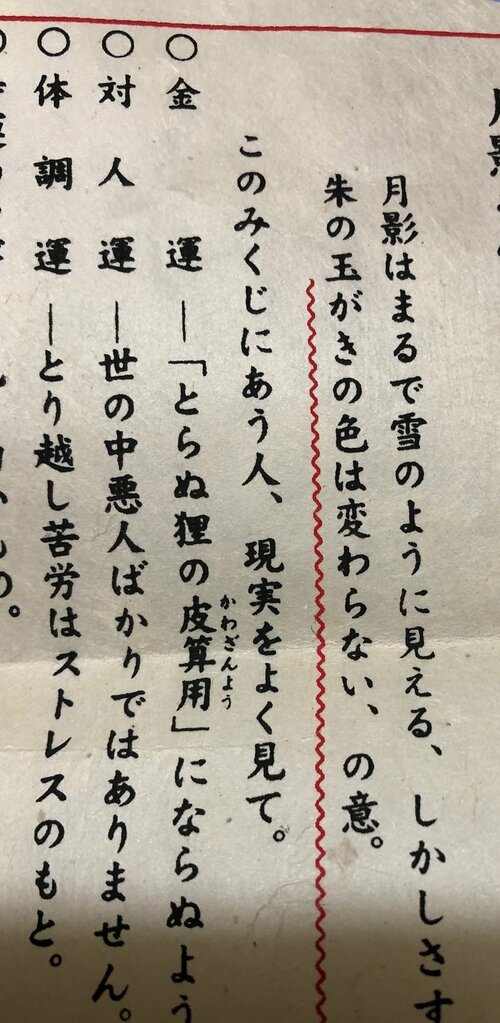 月影はまるで雪のように見える、しかしさす
朱の玉がきの色は変わらない、の意。
このみくじにあう人、現実をよく見て。
○金運―「とらぬ狸の皮算用」にならぬよう
かわざんよう
○対人運―世の中悪人ばかりではありません。
○体調運―とり越し苦労はストレスのもと。